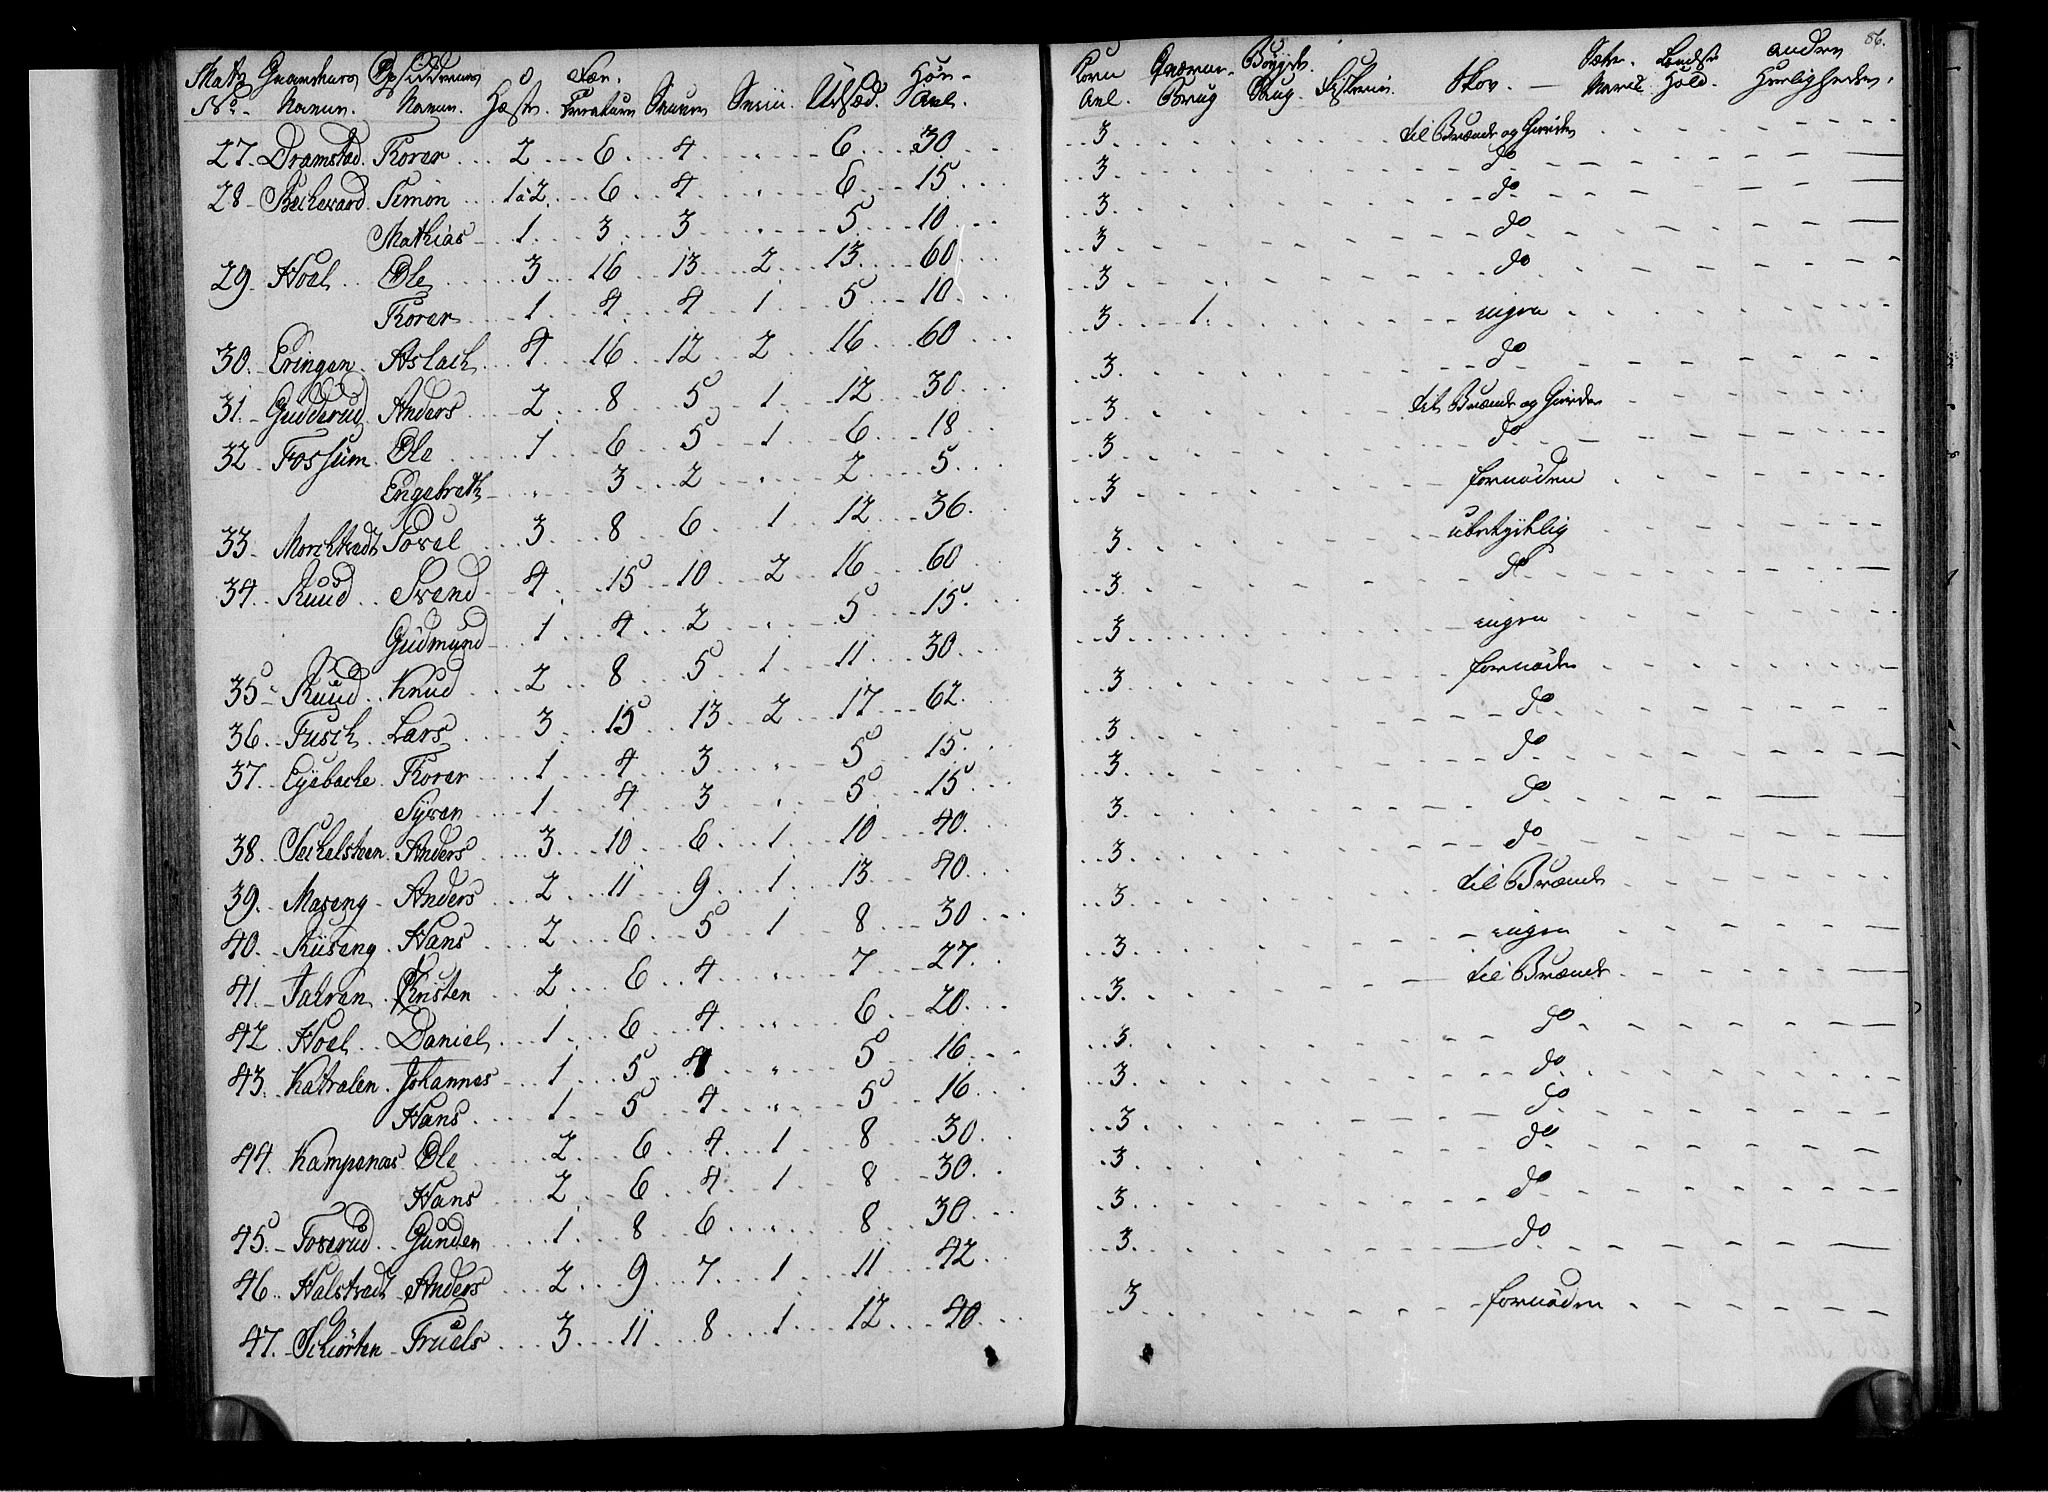 86.
Matr. Gaardenes Opsidderens Fær- Høe-
No. Namen. Namen. Heste. Smaae Sviin. Udsæd. Avl.
Korn Qværne- Bøigde- Fiskerie. Skov. Sæter Andre
Avl. Brug Brug. Havnl. Hold. Herligheder.
27. Dramstad. Thorer 2 6 4 6 30 3 til Brænde og Gierder
28 Simon 1 a 2 6 4 6 15 3 do
Mathias 1 3 3 5 10 3 do
29 Hoel Ole 3 16 13 2 13 60 3 do
Thorer 1 4 4 1 5 10 3 do
30. Eringen Aslach 4 16 12 2 16 60 3 1. ingen
31. Gudderud Anders 2 8 5 1 12 30 3 do
32 Fossum Ole 1 6 5 1 6 18 3 til Brænde og Gierder
Engebreth 3 2 2 5 3 do
33 Morchtradt Povel 3 8 6 1 12 36 3 fornøden
34. Ruud Svend 4 15 10 2 16 60 3
Gudmund 1 4 2 5 15 3 do
35 Ruud Knud 2 8 5 1 11 30 3 ingen
36. Fusch Lars 3 15 13 2 17 62 3 fornøden
37. Eyebache Thorer 1 4 3 5 15 3 do
Syver 1 4 3 5 15 3 do
38. Sechelsteen Anders 3 10 6 1 10 40 3 do
39. Maseng Anders 2 11 9 1 13 40 3 do
40. Riiseng Hans 2 6 5 1 8 30 3 til Brænde
41. Christen 2 6 4 7 27 3 ingen
42 Hoel Daniel 1 6 4 6 20 3 til Brænde
43. Katralen Johannes 1 5 4 5 16 3 do
Hans 1 5 4 5 16 3 do
44. Kampenæs Ole 2 6 4 1 8 30 3 do
Hans 2 6 4 1 8 30 3 do
45. Toserud Gunder 1 8 6 8 30 3 do
46 Halstradt Anders 2 9 7 1 11 42 3 do
47. Schiørten Truels 3 11 8 1 12 40 3 fornøden